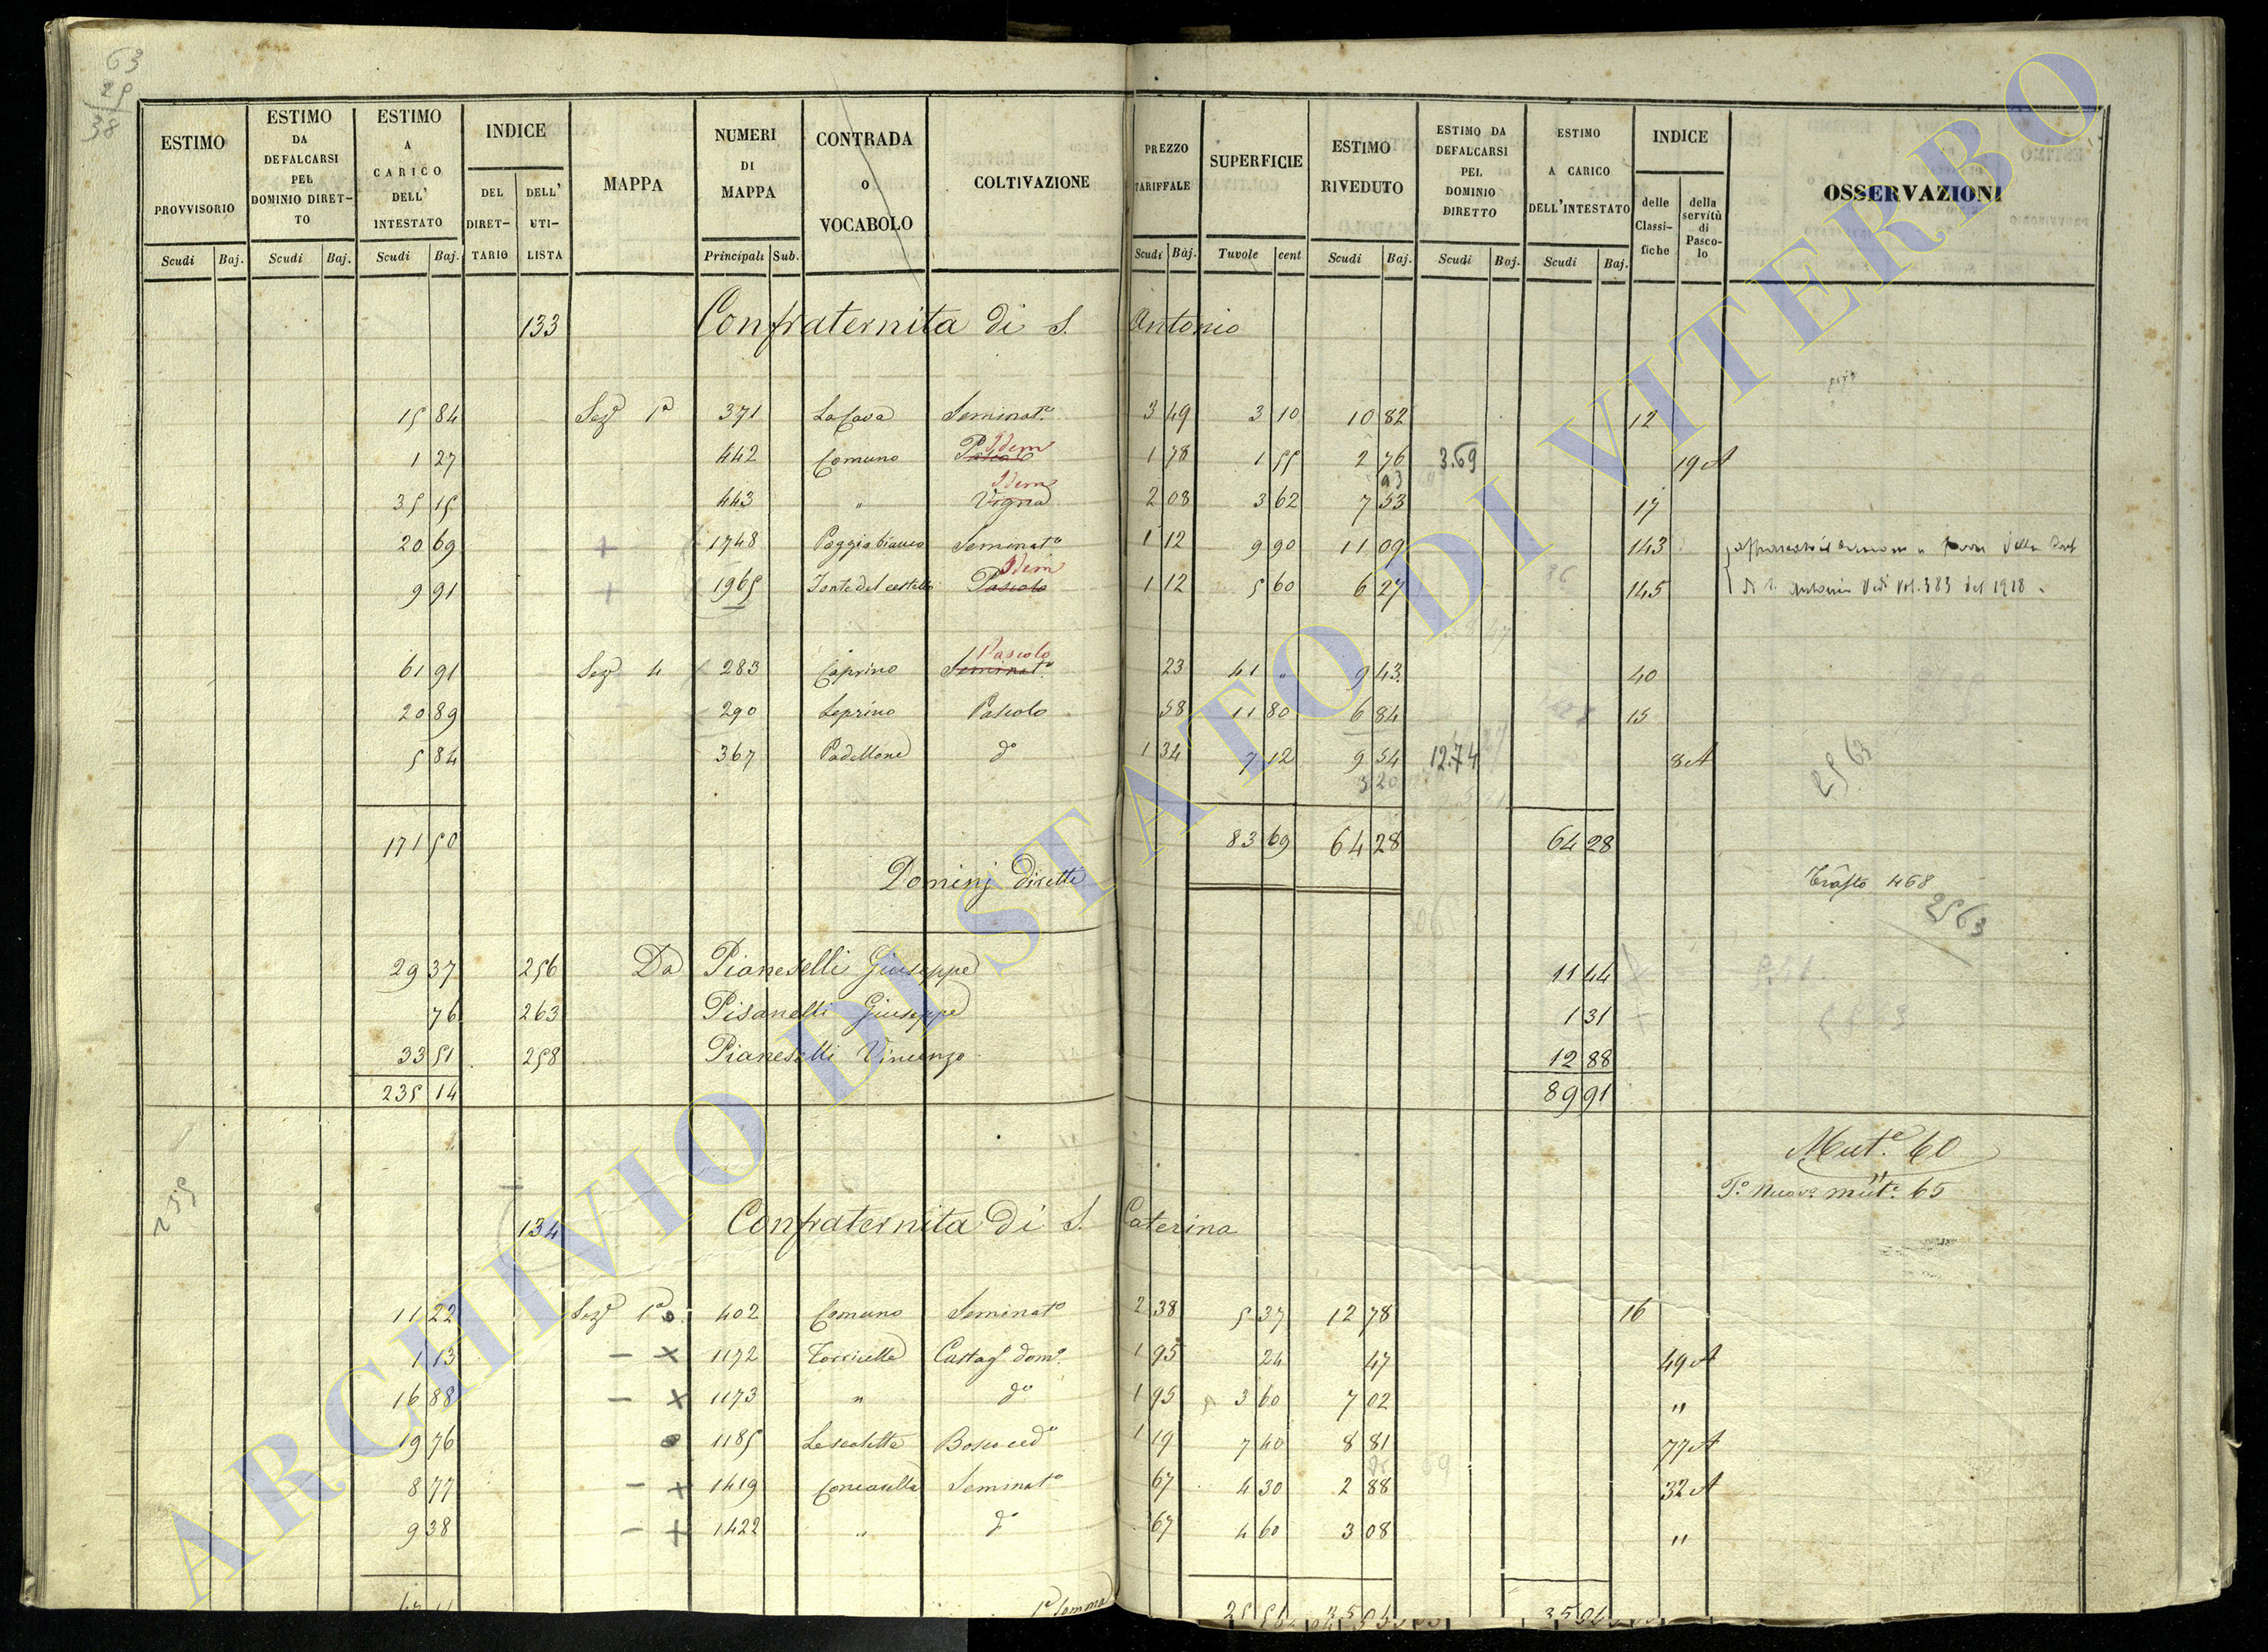 63
25
38
ESTIMO PROVVISORIO
ESTIMO DA DEFALCARSI PEL DOMINIO DIRET-TO
ESTIMO A CARICO DELL' INTESTATO
INDICE
DEL DIRET-TARIO
DELL' UTI-LISTA
MAPPA
NUMERI DI MAPPA
CONTRADA O VOCABOLO
COLTIVAZIONE
PREZZO TARIFFALE
SUPERFICIE
ESTIMO RIVEDUTO
ESTIMO DA DEFALCARSI PEL DOMINIO DIRETTO
ESTIMO A CARICO DELL'INTESTATO
INDICE
delle Classi-fiche
della servitù di Pasco-lo
OSSERVAZIONI
Scudi Baj. Scudi Baj. Scudi Baj. Principali Sub. Scudi Baj. Tuvole cent Scudi Baj. Scudi Baj. Scudi Baj.
133 Confraternita di S. Antonio
15 84 Sezᵉ 1ᵃ 371 La Cava Seminatº 3 49 3 10 10 82 12
1 27 442 Comuno Pascolo Idem 1 78 1 55 2 76 3.69 19 A
93
35 15 443 " Vigna Idem 2 08 3 62 7 53 17
20 69 + 1748 Poggio bianco Seminatº 1 12 9 90 11 09 143
9 91 + 1965 Fonte del castello Pascolo Idem 1 12 5 60 6 27 145 di S. Antonio Vedi Vol. 383 del 1928
61 91 Sezᵉ 4 283 Caprino Seminatº Pascolo 23 41 " 9 43 40
20 89 290 Leprino Pascolo 58 11 80 6 84 15
5 84 367 Padellone dº 1 34 7 12 9 54 12.74 8 A
3 20
2563
171 50 83 69 64 28 64 28
Dominj diretti
Trasto 468
2563
29 37 256 Da Pianeselli Giuseppe 11 44
76 263 Pisanelli Giuseppe 1 31
33 51 258 Pianeselli Vincenzo 12 88
235 14 89 91
Mutᵉ 60
Tº nuovº mutᵉ 65
134 Confraternita di S. Caterina
11 22 Sezᵉ 1ᵃ 402 Comuno Seminatº 2 38 5 37 12 78 16
1 13 – × 1172 Torricella Castagº domº 1 95 24 47 49 A
16 88 – × 1173 " dº 1 95 3 60 7 02 "
19 76 1185 Le scalette Bosco cedº 1 19 7 40 8 81 77 A
8 77 – + 1419 Concarella Seminatº 67 4 30 2 88 32 A
9 38 – + 1422 " dº 67 4 60 3 08 "
Somma 25 51 35 04 35 04
ARCHIVIO DI STATO DI VITERBO